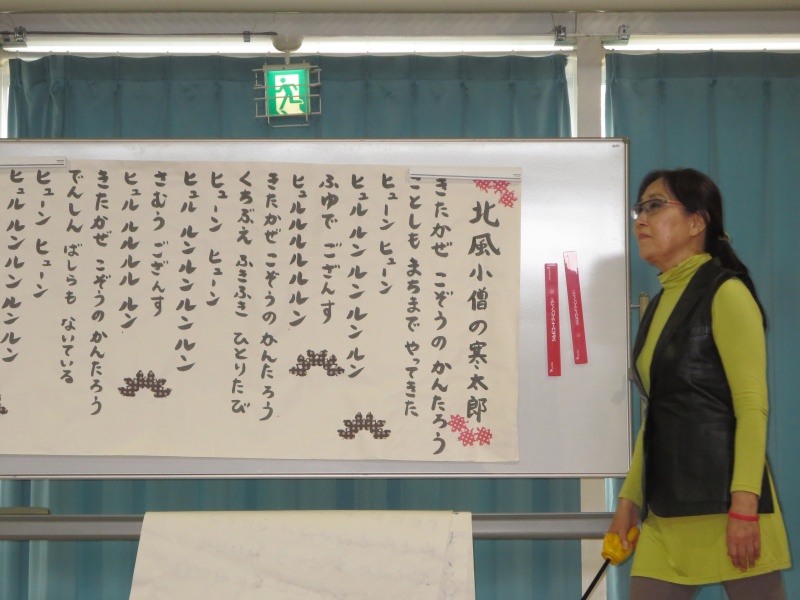 北風小僧の寒太郎
きたかぜ こぞうの かんたろう
ことしも まちまで やってきた
ヒューン ヒューン
ヒュル ルン ルン ルン ルン
ふゆで ござんす
ヒュルルルルルルン
きたかぜ こぞうの かんたろう
くちぶえ ふきふき ひとりたび
ヒューン ヒューン
ヒュル ルン ルン ルン ルン
さむう ござんす
ヒュル ルル ルル ルン
きたかぜ こぞうの かんたろう
でんしん ばしらも ないている
ヒューン ヒューン
ヒュル ルン ルン ルン ルン